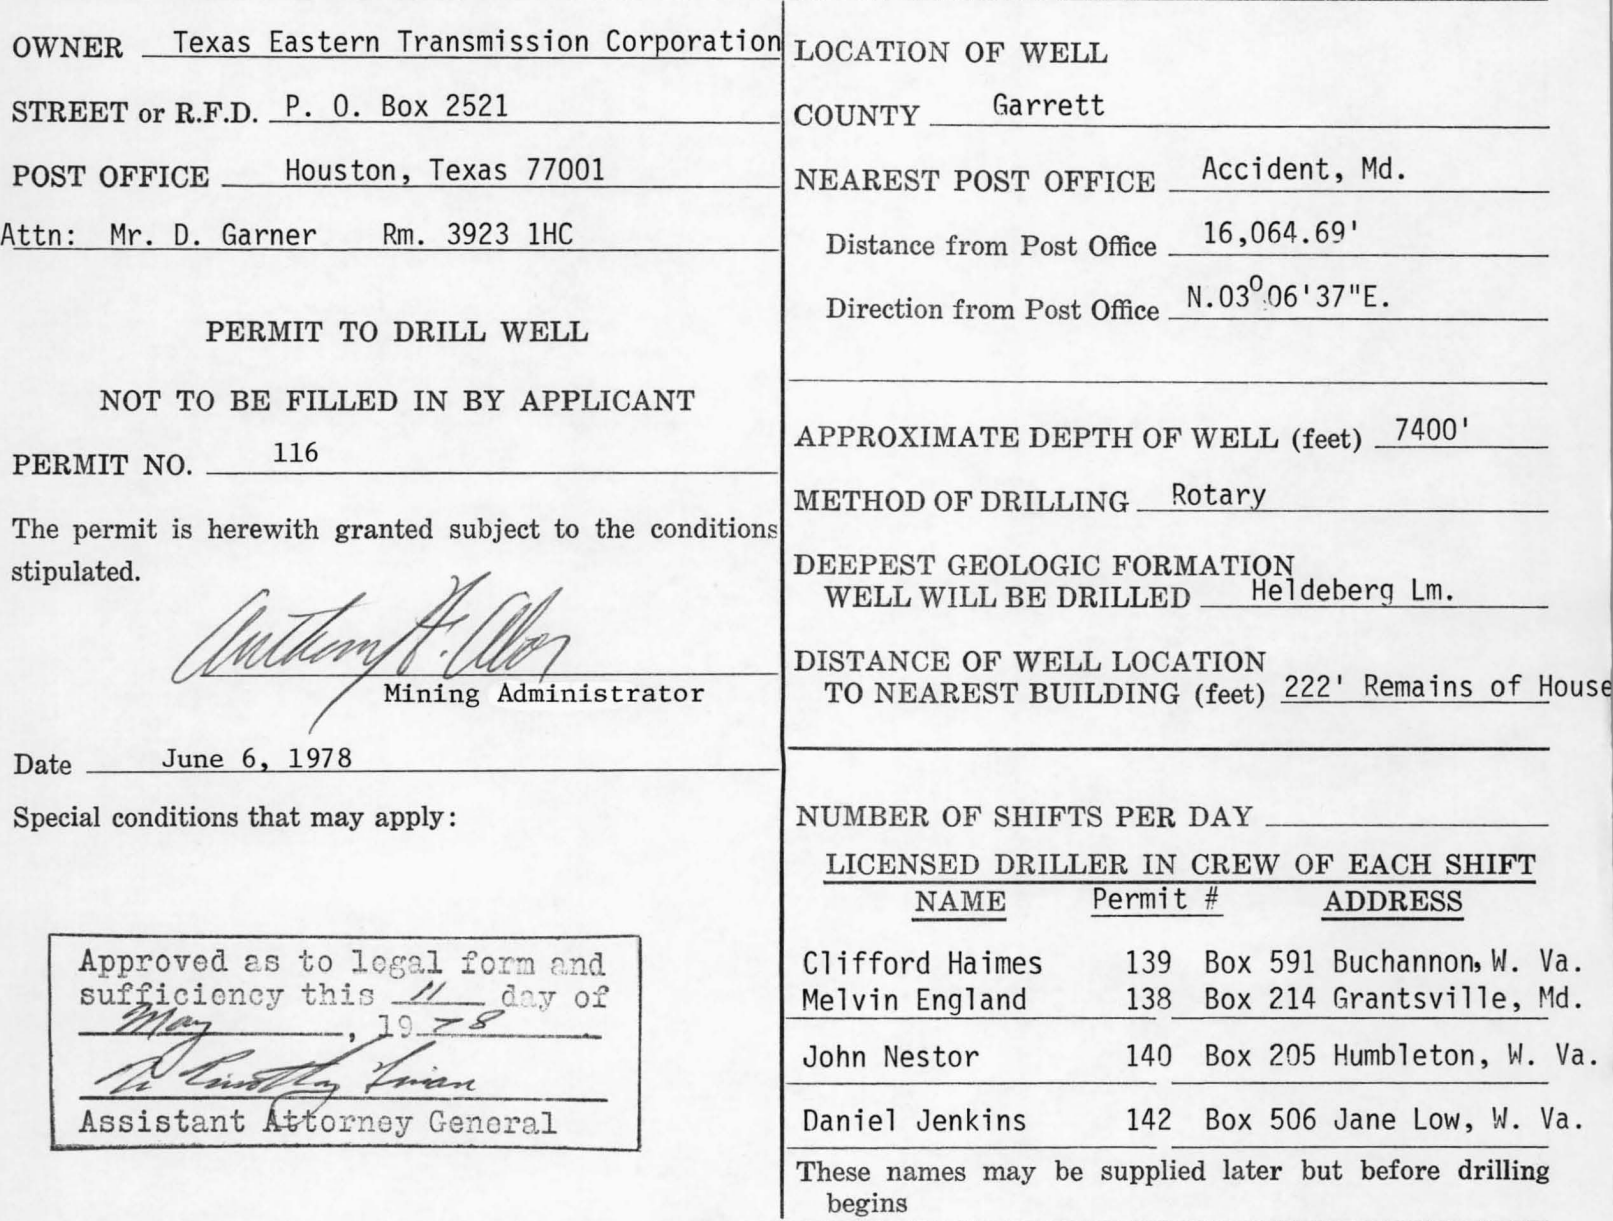 OWNER Texas Eastern Transmission Corporation
STREET or R.F.D. P. O. Box 2521
POST OFFICE Houston, Texas 77001
Attn: Mr. D. Garner Rm. 3923 1HC
PERMIT TO DRILL WELL
NOT TO BE FILLED IN BY APPLICANT
PERMIT NO. 116
The permit is herewith granted subject to the conditions
stipulated.
Mining Administrator
Date June 6, 1978
Special conditions that may apply:
Approved as to legal form and
sufficiency this 11 day of
May, 1978.
Assistant Attorney General
LOCATION OF WELL
COUNTY Garrett
NEAREST POST OFFICE Accident, Md.
Distance from Post Office 16,064.69'
Direction from Post Office N.03°06'37"E.
APPROXIMATE DEPTH OF WELL (feet) 7400'
METHOD OF DRILLING Rotary
DEEPEST GEOLOGIC FORMATION
WELL WILL BE DRILLED Heldeberg Lm.
DISTANCE OF WELL LOCATION
TO NEAREST BUILDING (feet) 222' Remains of House
NUMBER OF SHIFTS PER DAY
LICENSED DRILLER IN CREW OF EACH SHIFT
NAME Permit # ADDRESS
Clifford Haimes 139 Box 591 Buchannon, W. Va.
Melvin England 138 Box 214 Grantsville, Md.
John Nestor 140 Box 205 Humbleton, W. Va.
Daniel Jenkins 142 Box 506 Jane Low, W. Va.
These names may be supplied later but before drilling
begins